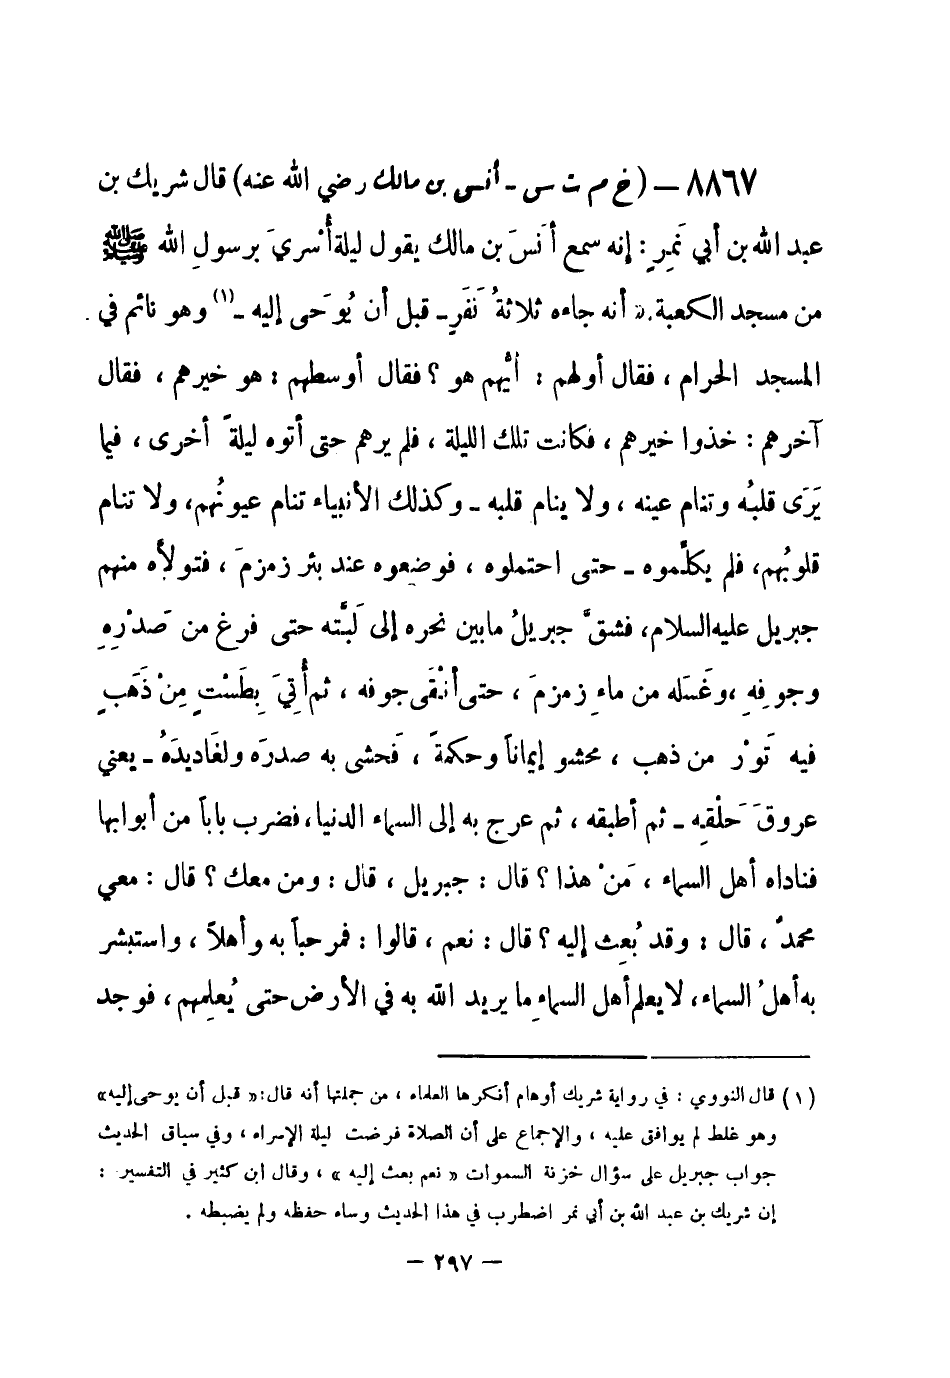 ٨٨٦٧ — ( خ م ت س - أنس بن مالك رضي الله عنه ) قال شريك بن
عبد الله بن أبي نَمِرٍ : إنه سمع أنسَ بن مالك يقول ليلة أُسْريَ برسولِ الله ﷺ
من مسجد الكعبة : « أنه جاءه ثلاثةُ نَفَرٍ ـ قبل أن يُوحَى إليه ـ (١) وهو نائم في
المسجد الحرام ، فقال أولهم : أيُّهم هو ؟ فقال أوسطهم : هو خيرهم ، فقال
آخرهم : خذوا خيرهم ، فكانت تلك الليلة ، فلم يرهم حتى أتوه ليلةً أخرى ، فيما
يَرَى قلبُه وتنام عينه ، ولا ينام قلبه ـ وكذلك الأنبياء تنام عيونُهم ، ولا تنام
قلوبُهم ، فلم يكلِّموه ـ حتى احتملوه ، فوضعوه عند بئر زمزمَ ، فتولَّاه منهم
جبريل عليه السلام ، فشقَّ جبريلُ ما بين نحره إلى لَبَّته حتى فرغ من صَدْرِهِ
وجوفِهِ ، وغَسَله من ماءِ زمزمَ ، حتى أنْقَى جوفه ، ثم أُتِيَ بِطَسْتٍ مِنْ ذَهَبٍ
فيه تَوْرٌ من ذهب ، محشو إيماناً وحكمةً ، فَحشى به صدرَه ولغَاديدَهُ ـ يعني
عروقَ حَلْقِه ـ ثم أطبقه ، ثم عرج به إلى السماء الدنيا ، فضرب باباً من أبوابها
فناداه أهل السماء ، مَنْ هذا ؟ قال : جبريل ، قال : ومن معك ؟ قال : معي
محمدٌ ، قال : وقد بُعِث إليه ؟ قال : نعم ، قالوا : فمرحباً به وأهلاً ، واستبشر
به أهلُ السماء ، لا يعلم أهل السماءِ ما يريد الله به في الأرض حتى يُعلِمهم ، فوجد
(١) قال النووي : في رواية شريك أوهام أنكرها العلماء ، من جملتها أنه قال : « قبل أن يوحى إليه »
وهو غلط لم يوافق عليه ، والإجماع على أن الصلاة فرضت ليلة الإسراء ، وفي سياق الحديث
جواب جبريل على سؤال خزنة السموات « نعم بعث إليه » ، وقال ابن كثير في التفسير :
إن شريك بن عبد الله بن أبي نمر اضطرب في هذا الحديث وساء حفظه ولم يضبطه .
— ٢٩٧ —